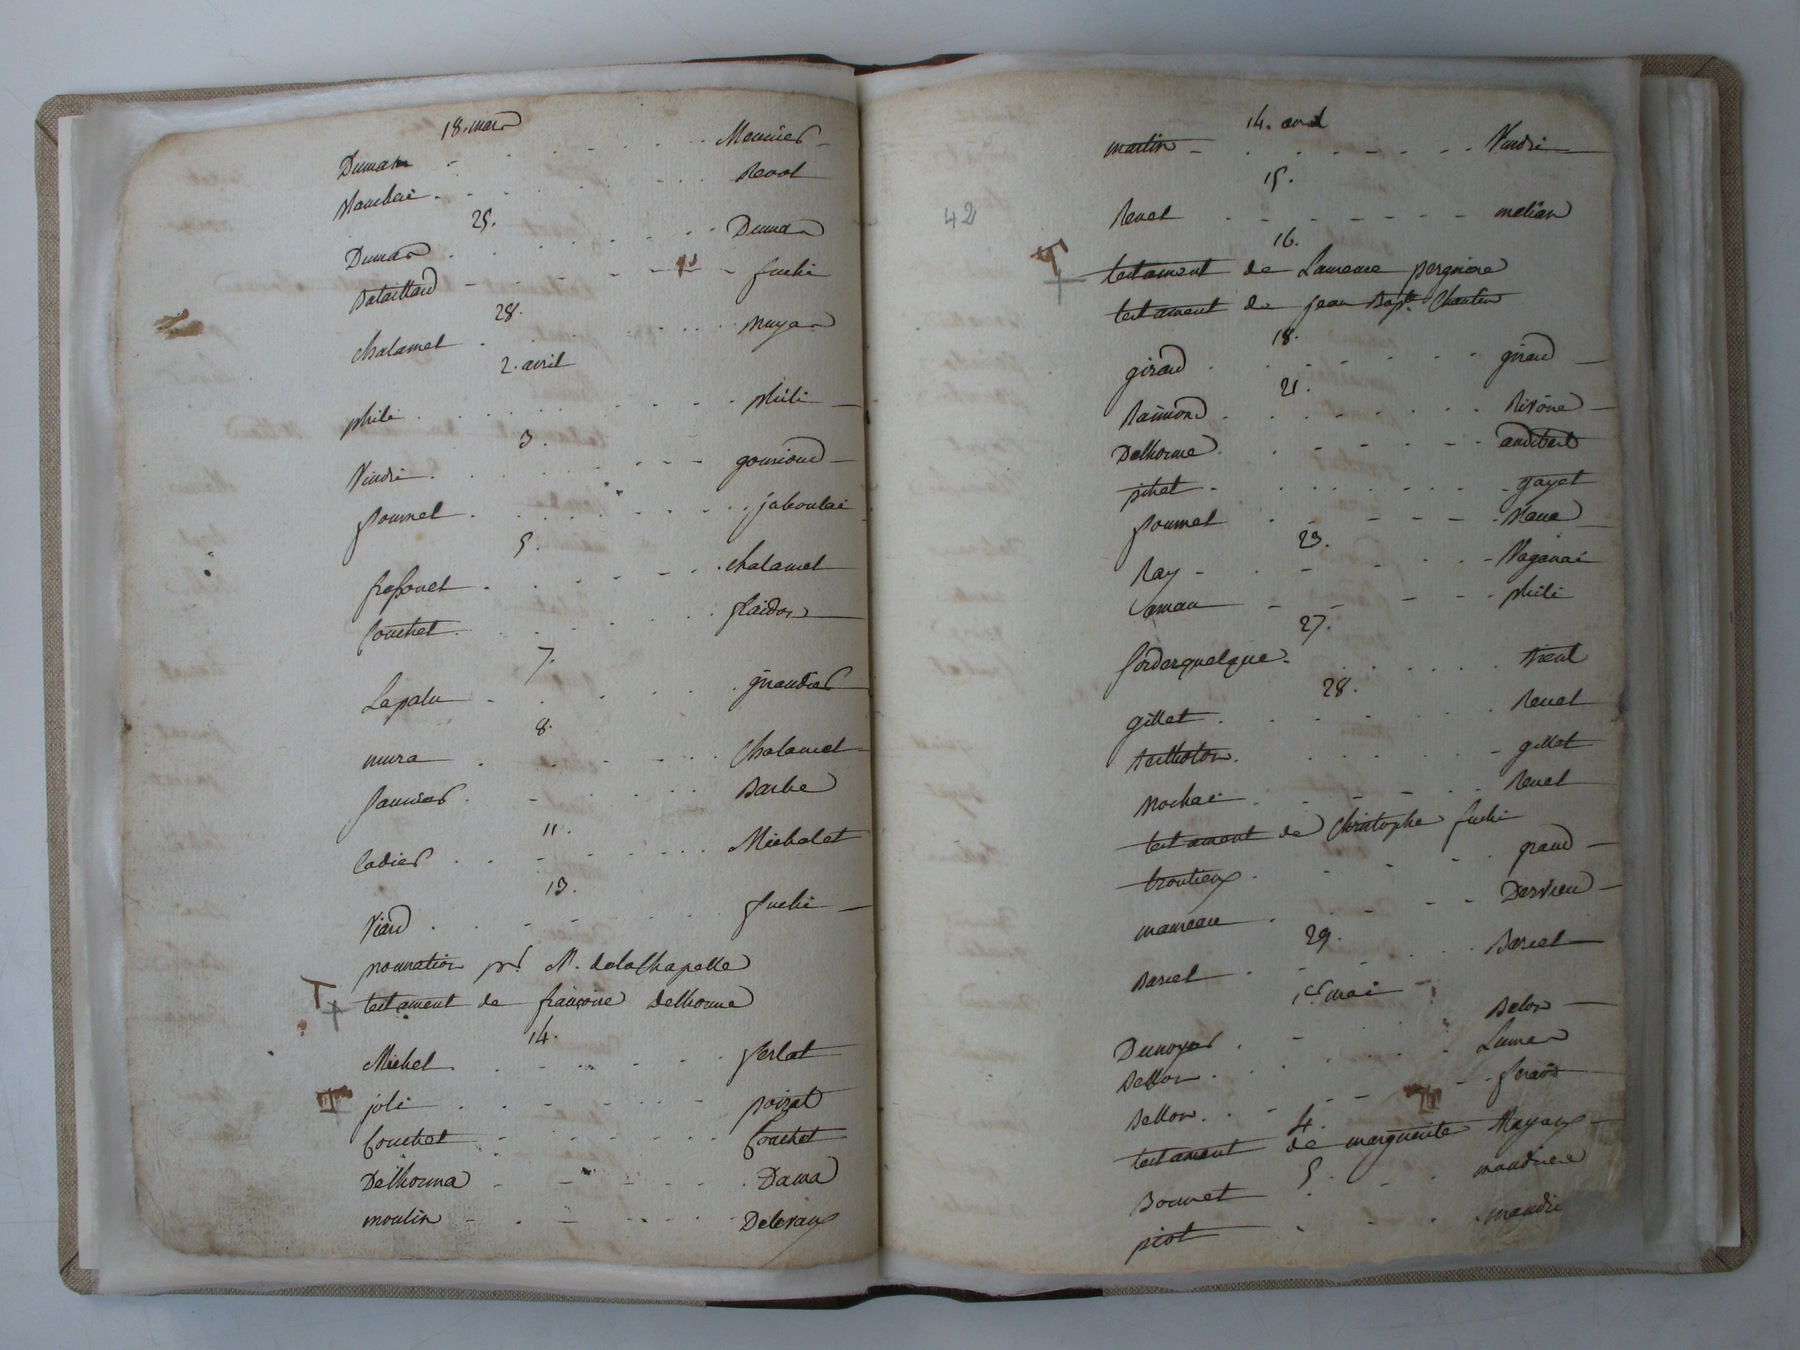 18. mars
Dumas - Meunier
- Revol
25.
Dumas - Dumas
Bataillard - fuchi
28.
Chalamet - Mayan
2. avril
phili - phili
3.
Vindri - gourioud
fournel - jaboulai
5.
fressonet - chalamel
Couchet - plaidon
7.
Lapalu - giraudier
8.
mura - Chalamel
Janvier - Barbe
11.
Cadier - Michalet
13.
Viard - fuchi
procuration pr M. delaChapelle
testament de françoise Delhorme
14.
Michel - ferlat
joli - poizat
Couchet - Couchet
Delhorma - Dama
moulin - Delevaux
42
14. avril
martin - Vindri
15.
Revel - melian
16.
testament de Laurence
testament de jean Bapte. Charlin
18.
giraud - giraud
21.
Raimond - Rivoire
Delhorme - audibert
pihet - gayet
fournel
23.
Ray - Vaganai
- phili
27.
forderquelque
28.
gillet - Revel
Bertholon - gillet
- Revel
testament de Christophe fuchi
troulieux - graud
mameau - Dervieu
29.
Bariel - Bariel
1er. mai
Dunoyer - Belon
Bellon
Bellon
4.
testament de marguerite Mayaux
5.
Bonnet
piot